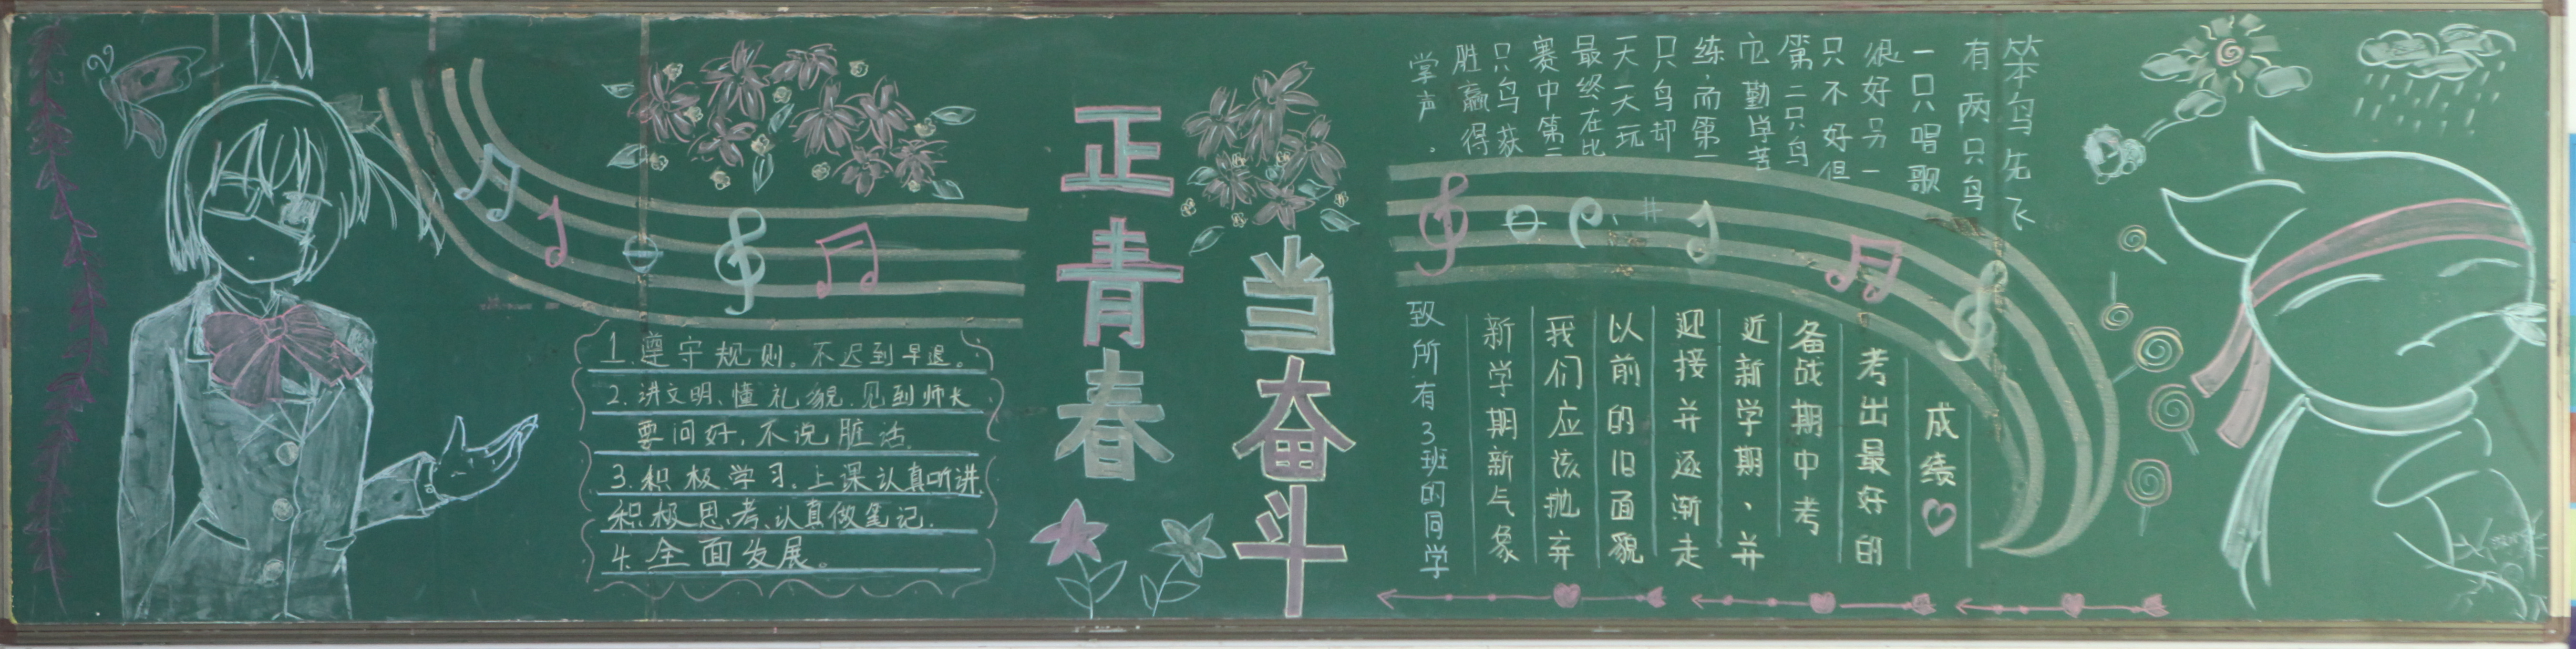 1.遵守规则。不迟到早退。
2.讲文明、懂礼貌.见到师长
要问好,不说脏话.
3.积极学习.上课认真听讲.
积极思考、认真做笔记.
4.全面发展。
正青春
当奋斗
笨鸟先飞
有两只鸟
一只唱歌
很好另一
只不好但
第二只鸟
它勤学苦
练,而第一
只鸟却
天天玩
最终在比
赛中第二
只鸟获
胜赢得
掌声.
致所有3班的同学
新学期新气象
我们应该抛弃
以前的旧面貌
迎接并逐渐走
近新学期、并
备战期中考
考出最好的
成绩